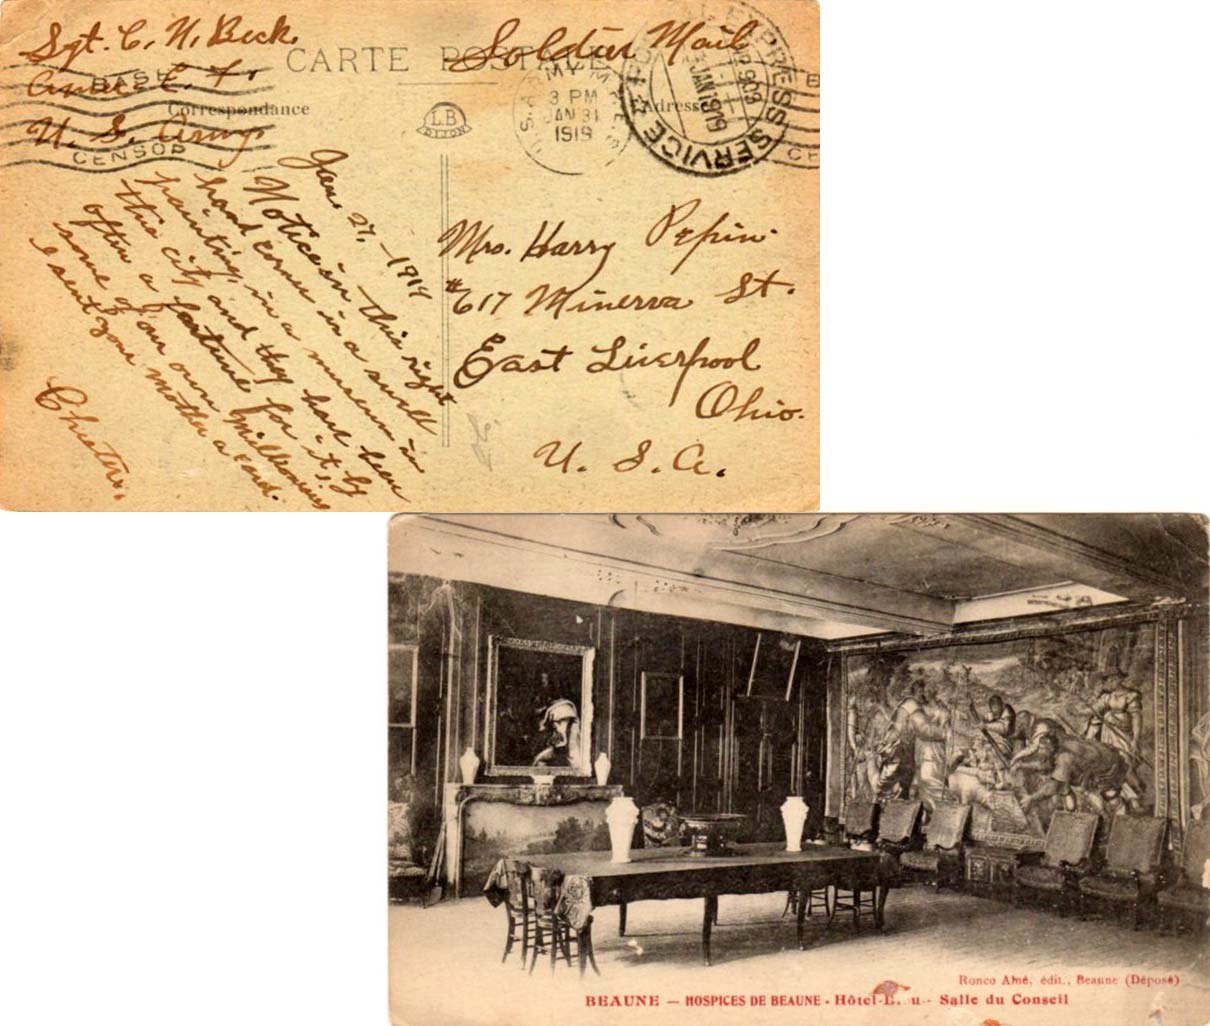 Sgt. C. N. Beck.
Amer. E. F.
U. S. Army.
Soldier Mail
CARTE POSTALE
Correspondance
Adresse
BASE
CENSOR
L.B
DIJON
U.S. ARMY M.P.E.S.
3 PM
JAN 31
1919
EXPRESS SERVICE
JAN 1919
No 903
Jan. 27,-1919
Notice in this right
hand corner in a swell
painting, in a museum in
this city and they have been
often a fortune for it, by
some of our own millionaires
I sent your mother a card.
Chester.
Mrs. Harry Pepin.
#617 Minerva St.
East Liverpool
Ohio.
U. S. A.
Ronco Aîné, édit., Beaune (Déposé)
BEAUNE — HOSPICES DE BEAUNE - Hôtel-D. u - Salle du Conseil